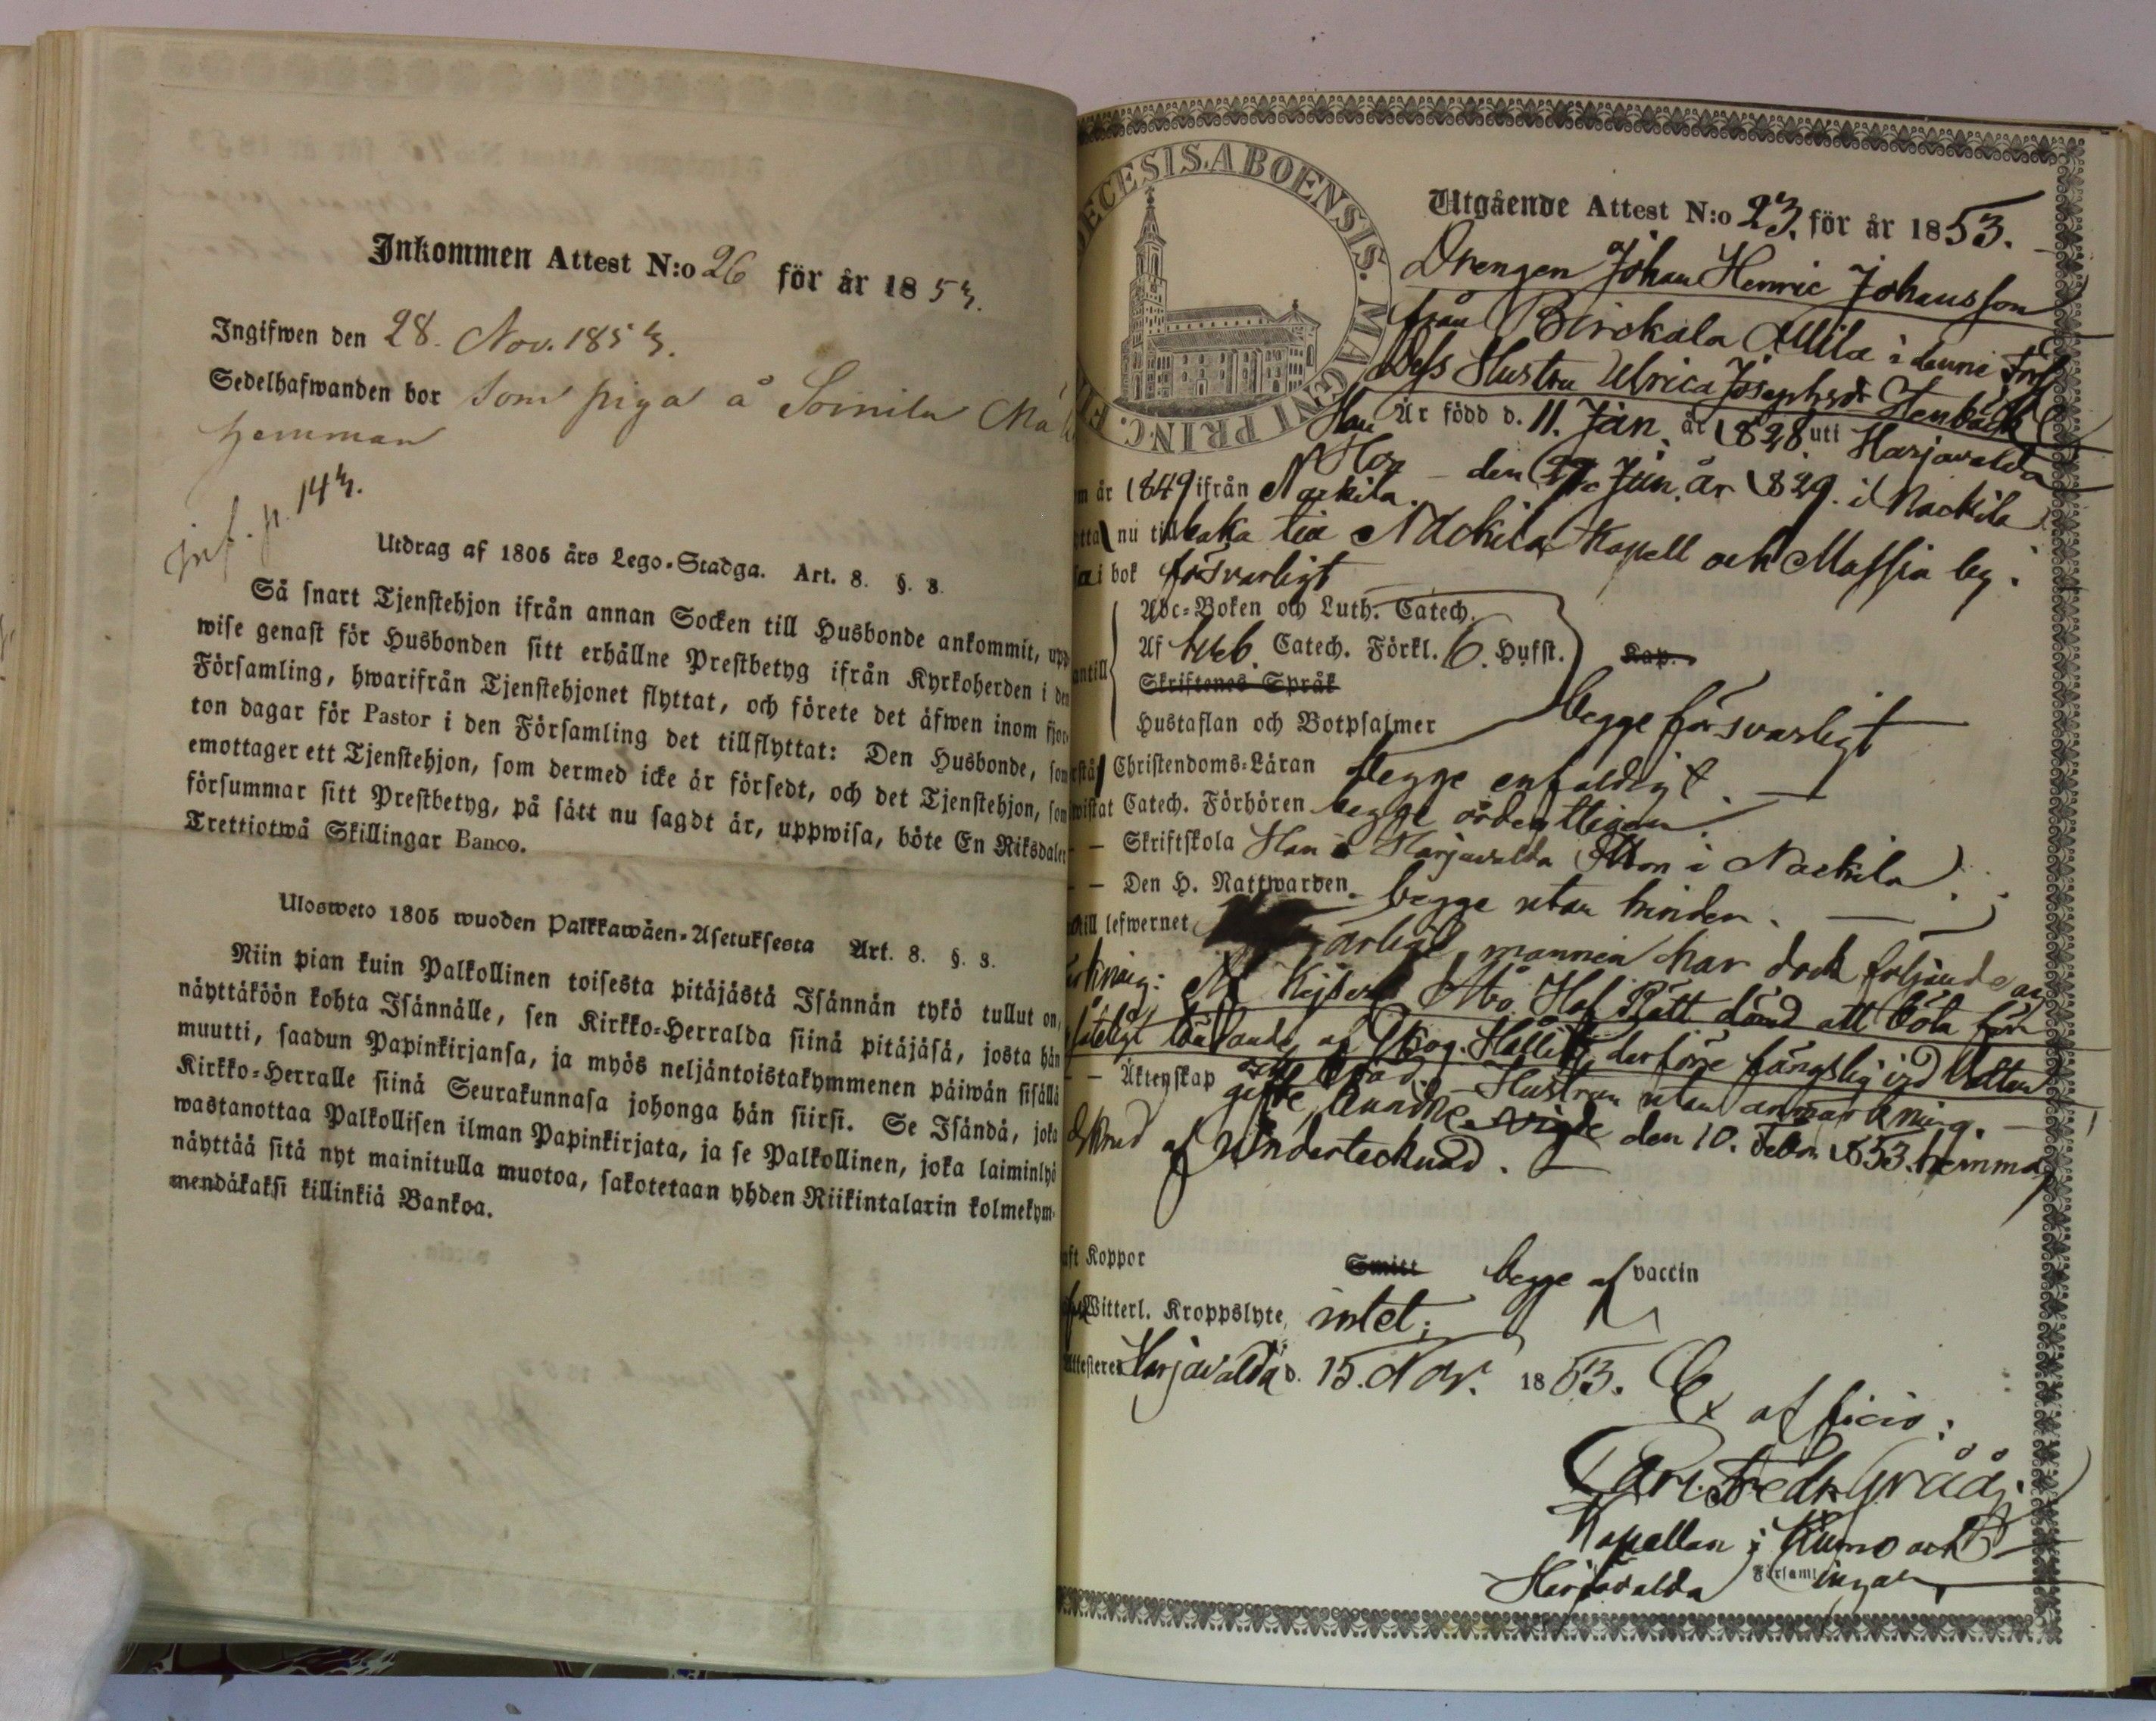 Inkommen Attest N:o 26 för år 1853.
Ingifwen den 28. Nov. 1853.
Sedelhafwanden bor som piga å Soinila
hemman
inf. p. 143.
Utdrag af 1805 års Lego-Stadga. Art. 8. §. 3.
Så snart Tjenstehjon ifrån annan Socken till Husbonde ankommit, upp
wise genast för Husbonden sitt erhållne Prestbetyg ifrån Kyrkoherden i den
Församling, hwarifrån Tjenstehjonet flyttat, och förete det äfwen inom fjor
ton dagar för Pastor i den Församling det tillflyttat: Den Husbonde, som
emottager ett Tjenstehjon, som dermed icke är försedt, och det Tjenstehjon, som
försummar sitt Prestbetyg, på sätt nu sagdt är, uppwisa, böte En Riksdaler
Trettiotwå Skillingar Banco.
Ulosweto 1805 wuoden Palkkawäen-Asetuksesta Art. 8. §. 3.
Niin pian kuin Palkollinen toisesta pitäjästä Isännän tykö tullut on,
näyttäköön kohta Isännälle, sen Kirkko-Herralda siinä pitäjäsä, josta hän
muutti, saadun Papinkirjansa, ja myös neljäntoistakymmenen päiwän sisällä
Kirkko-Herralle siinä Seurakunnasa johonga hän siirsi. Se Isändä, joka
wastanottaa Palkollisen ilman Papinkirjata, ja se Palkollinen, joka laiminlyö
näyttää sitä nyt mainitulla muotoa, sakotetaan yhden Riikintalarin kolmekym-
mendäkaksi killinkiä Bankoa.
DIECESIS. ABOENSIS. MAGNI PRINC. FI
Utgående Attest N:o 23. för år 1853.
Drengen Johan Henric Johansson
från Birckala Attila i denne Förs
Dess Hustru Ulrica Josephsdr Stenbäck
Han Är född d. 11. Jan. år 1828. uti Harjavalda
Hon den 27 Jun. år 1829. i Nackila
m år 1849 ifrån Nackila.
ttal nu tillbaka till Nackila Kapell och Massia by.
i bok försvarligt
Abc-Boken och Luth. Catech.
Af Catech. Förkl. 6. Hufst. Kap.
Skriftenes Språk
Hustaflan och Botpsalmer begge försvarligt
Christendoms-Läran begge enfaldigt.
wistat Catech. Förhören begge ordentligen.
— Skriftskola Han i Harjavalda Hon i Nackila.
— Den H. Nattwarden begge utan hinder.
till lefwernet ärligt, mannen har dock följande an
ärkning: Af Kejserl. Åbo Hof Rätt dömd att böta för
af Skog. derföre fängslig vid Vatten
och bröd. Hustrun utan anmärkning.
— Äktenskap gifte, den 10. Febr. 1853. hemma
af Undertecknad.
aft Koppor Smitt begge af vaccin
Witterl. Kroppslyte intet;
Attesteras Harjavalda d. 15. Nov. 1853. Ex officio:
Carl Fredr. Gråå.
Kapellan i Kumo och
Harjavalda Församlingar.